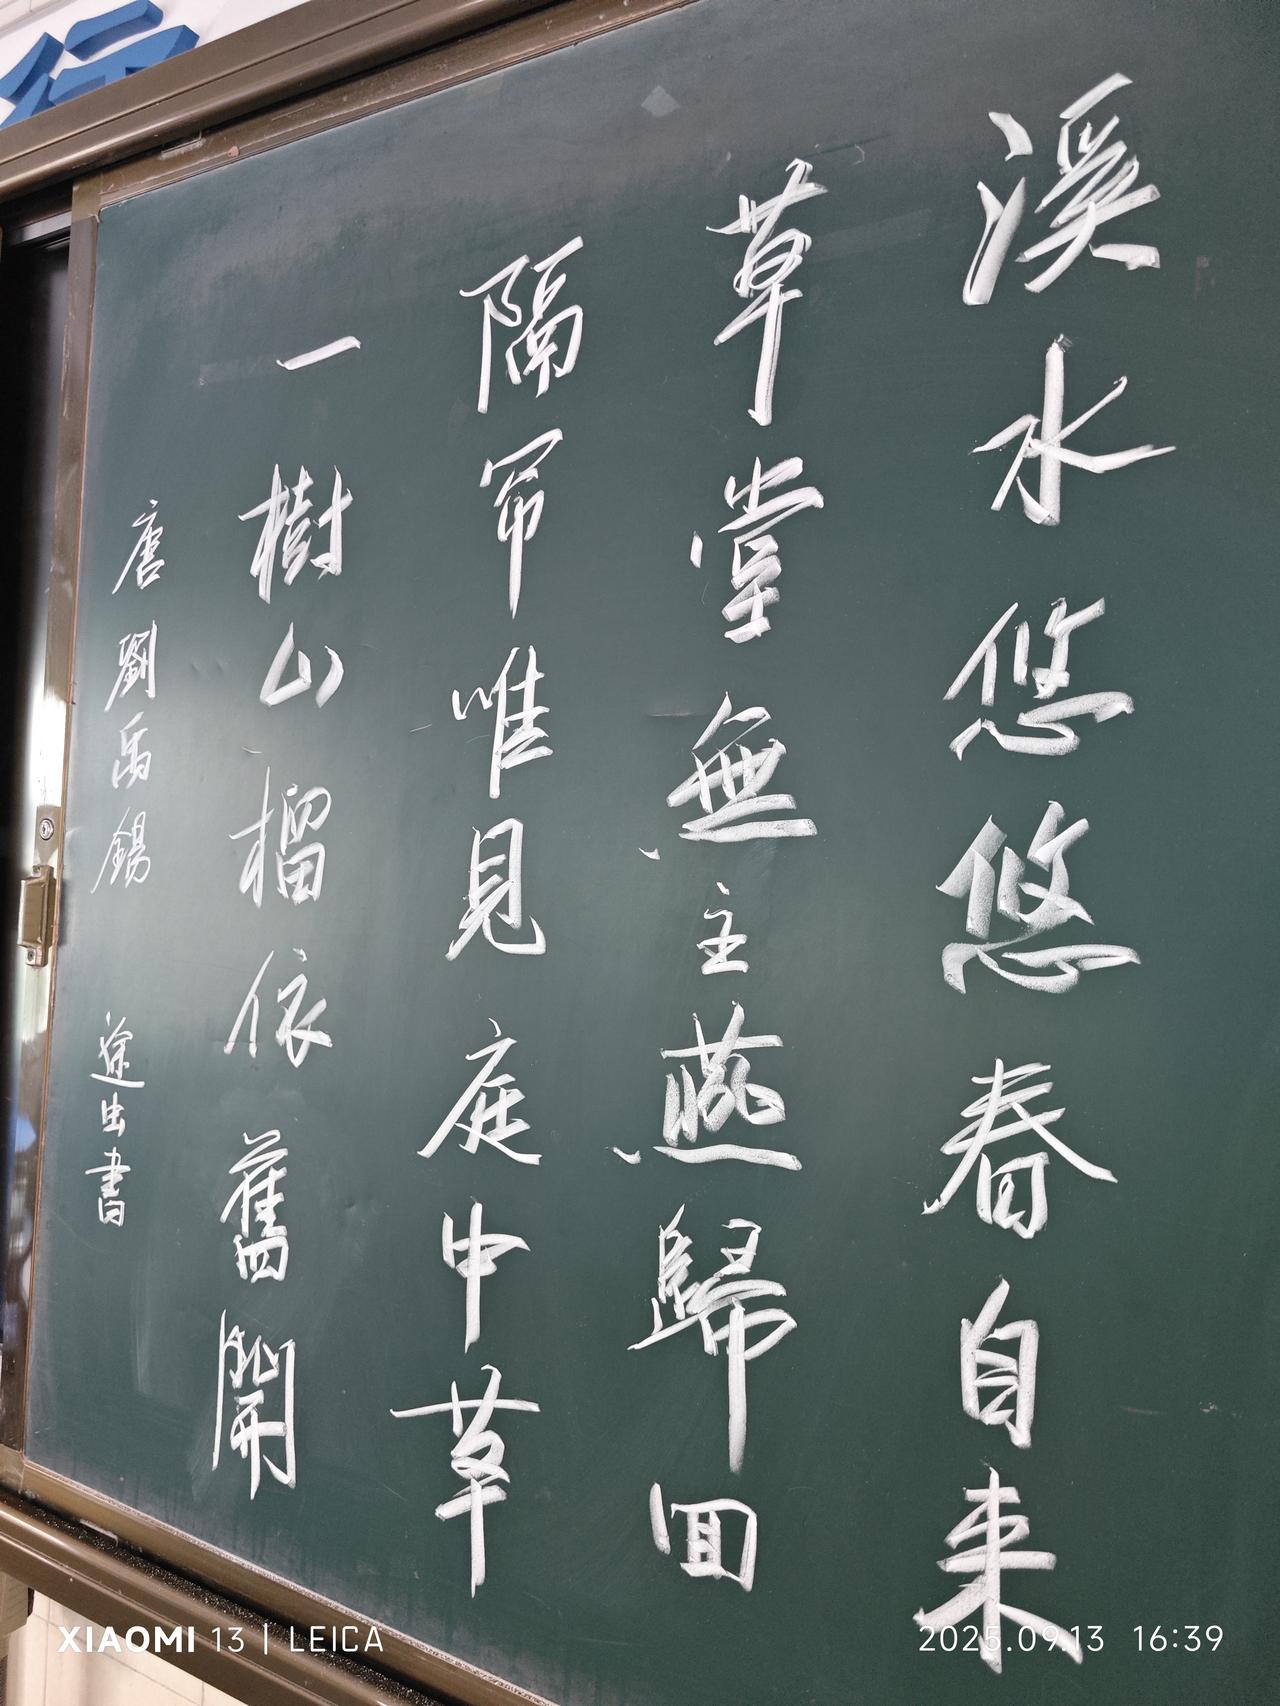 溪水悠悠春自来
草堂無主燕歸回
隔帘唯見庭中草
一樹山榴依舊開
唐劉禹錫 途虫書
行
XIAOMI 13 | LEICA
2025.09.13 16:39